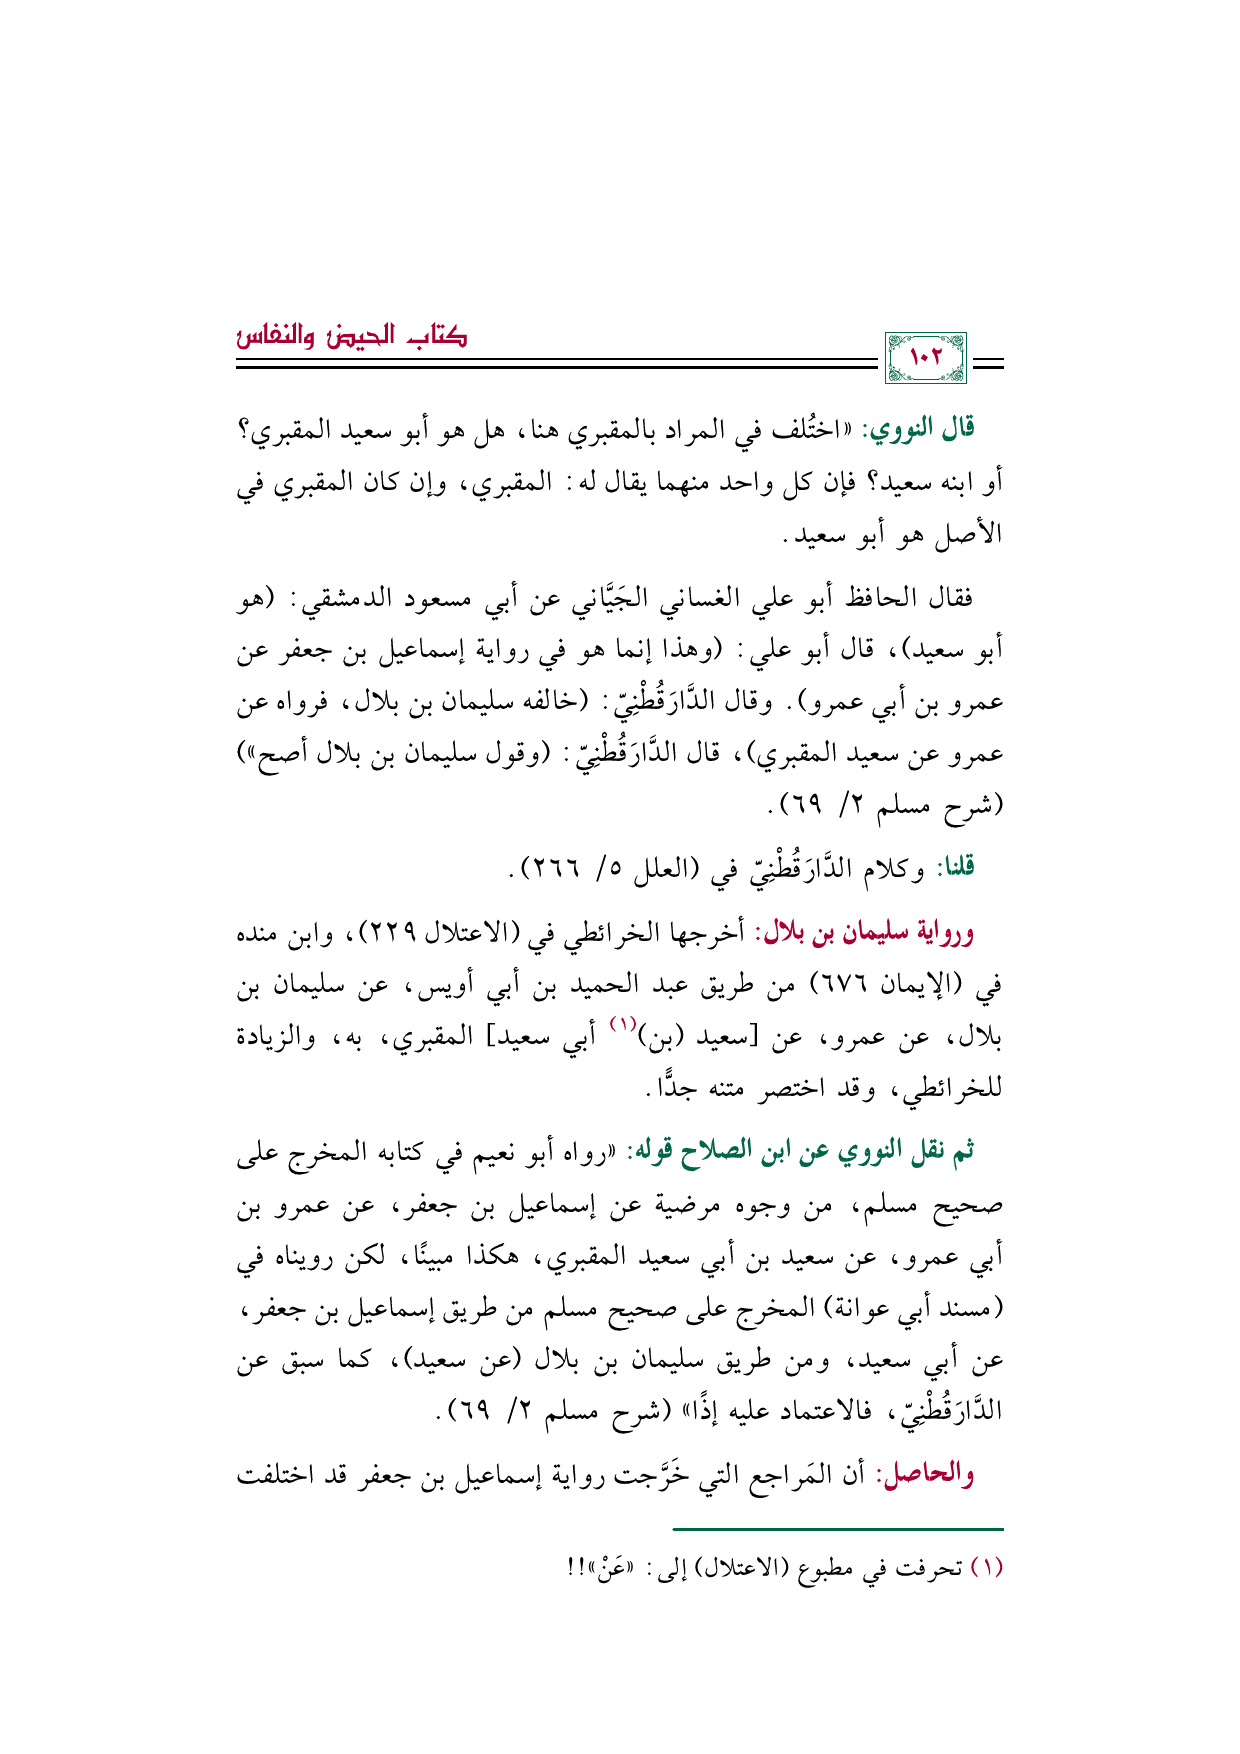 كتاب الحيض والنفاس
١٠٢
قال النووي: «اختُلف في المراد بالمقبري هنا، هل هو أبو سعيد المقبري؟
أو ابنه سعيد؟ فإن كل واحد منهما يقال له: المقبري، وإن كان المقبري في
الأصل هو أبو سعيد.
فقال الحافظ أبو علي الغساني الجَيَّاني عن أبي مسعود الدمشقي: (هو
أبو سعيد)، قال أبو علي: (وهذا إنما هو في رواية إسماعيل بن جعفر عن
عمرو بن أبي عمرو). وقال الدَّارَقُطْنِيّ: (خالفه سليمان بن بلال، فرواه عن
عمرو عن سعيد المقبري)، قال الدَّارَقُطْنِيّ: (وقول سليمان بن بلال أصح»)
(شرح مسلم ٢/ ٦٩).
قلنا: وكلام الدَّارَقُطْنِيّ في (العلل ٥/ ٢٦٦).
ورواية سليمان بن بلال: أخرجها الخرائطي في (الاعتلال ٢٢٩)، وابن منده
في (الإيمان ٦٧٦) من طريق عبد الحميد بن أبي أويس، عن سليمان بن
بلال، عن عمرو، عن [سعيد (بن)(١) أبي سعيد] المقبري، به، والزيادة
للخرائطي، وقد اختصر متنه جدًّا.
ثم نقل النووي عن ابن الصلاح قوله: «رواه أبو نعيم في كتابه المخرج على
صحيح مسلم، من وجوه مرضية عن إسماعيل بن جعفر، عن عمرو بن
أبي عمرو، عن سعيد بن أبي سعيد المقبري، هكذا مبينًا، لكن رويناه في
(مسند أبي عوانة) المخرج على صحيح مسلم من طريق إسماعيل بن جعفر،
عن أبي سعيد، ومن طريق سليمان بن بلال (عن سعيد)، كما سبق عن
الدَّارَقُطْنِيّ، فالاعتماد عليه إذًا» (شرح مسلم ٢/ ٦٩).
والحاصل: أن المَراجع التي خَرَّجت رواية إسماعيل بن جعفر قد اختلفت
(١) تحرفت في مطبوع (الاعتلال) إلى: «عَنْ»!!